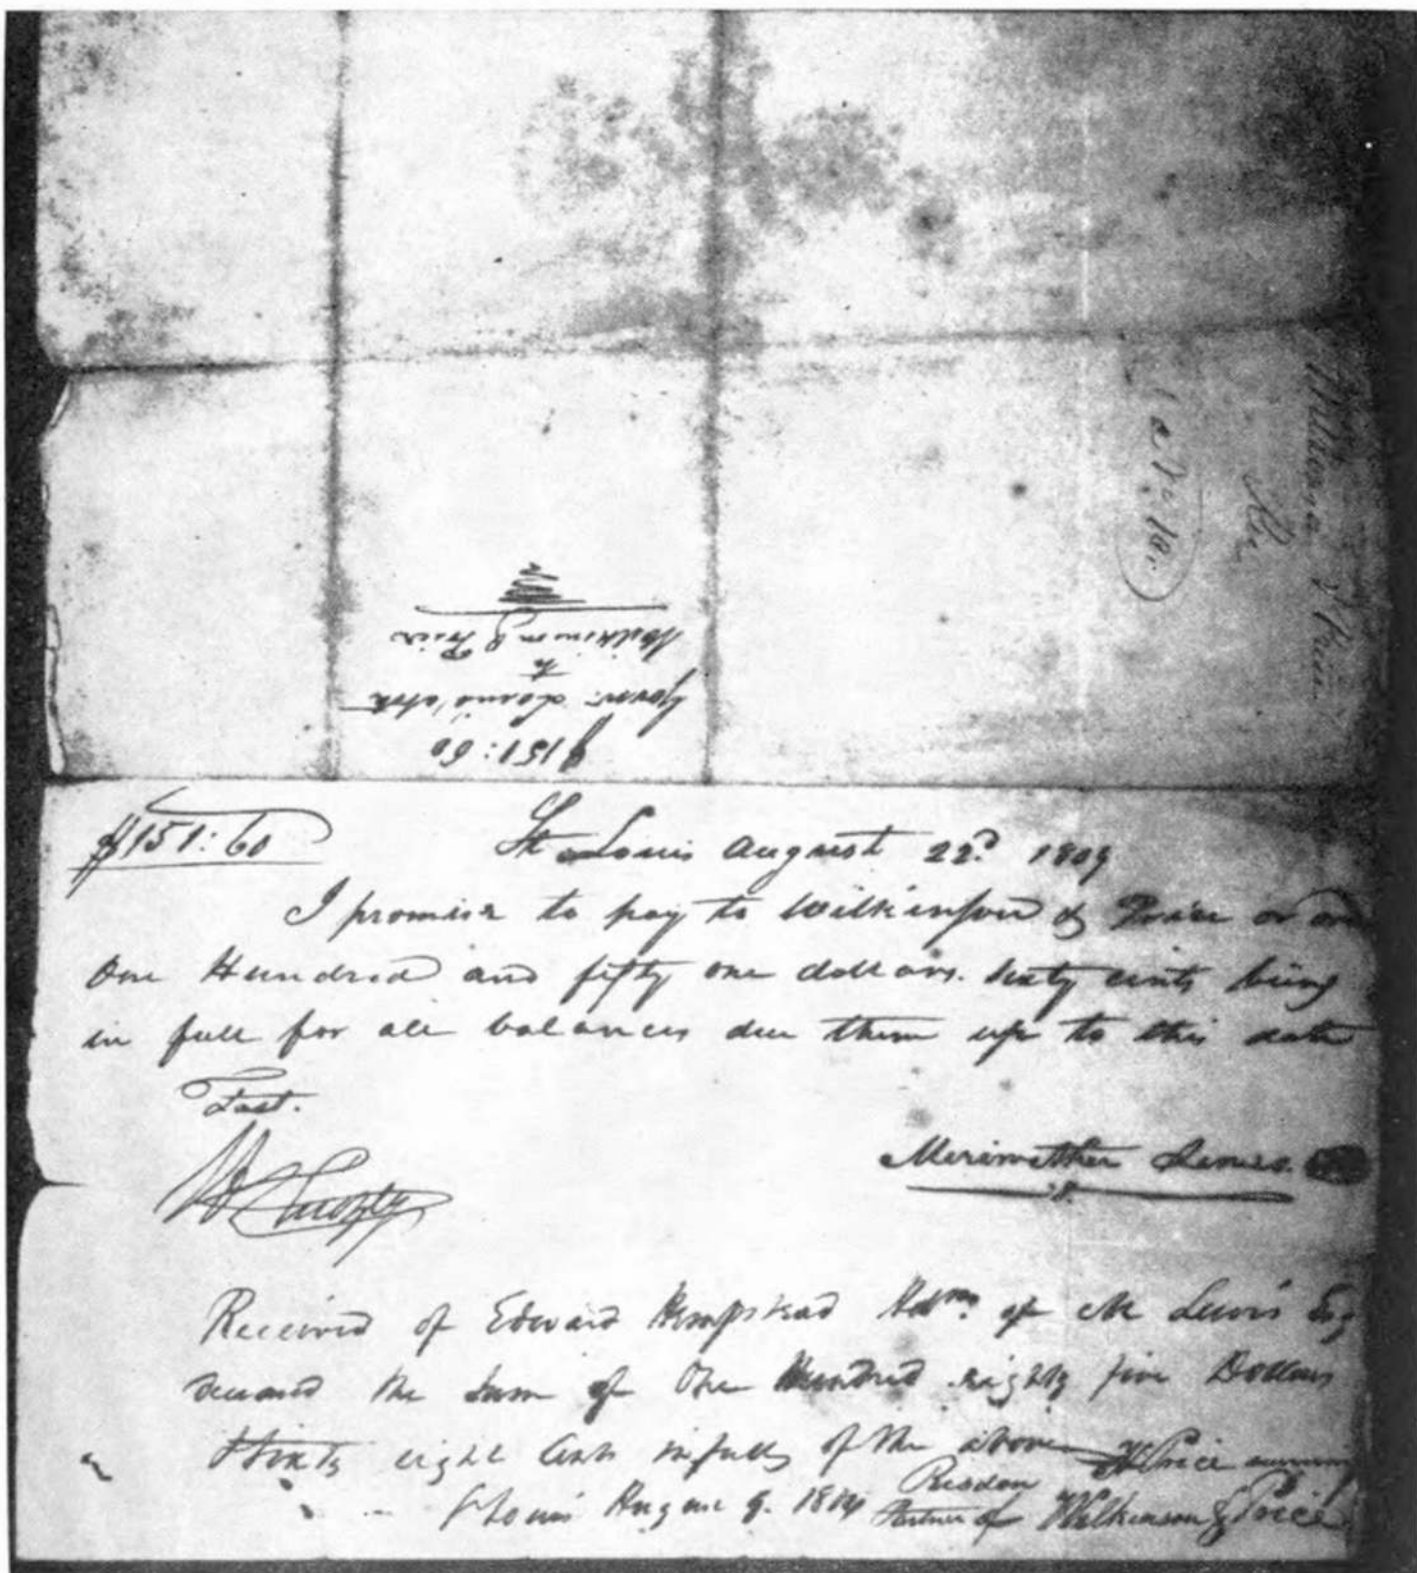 Wilkinson & Price
$151:60
Wilkinson & Price
to
$151:60
$151:60 St Louis August 22d. 1809
I promise to pay to Wilkinson & Price or
One Hundred and fifty one dollars. Sixty cents being
in full for all balances due them up to this date
Test.
Meriwether Lewis.
Received of Edward Hempstead Adm. of M Lewis Esq
deceased the Sum of One Hundred eighty five Dollars
eight Cents in full of the above
Risdon H Price surviving
St Louis August 9. 1814 Partner of Wilkinson & Price